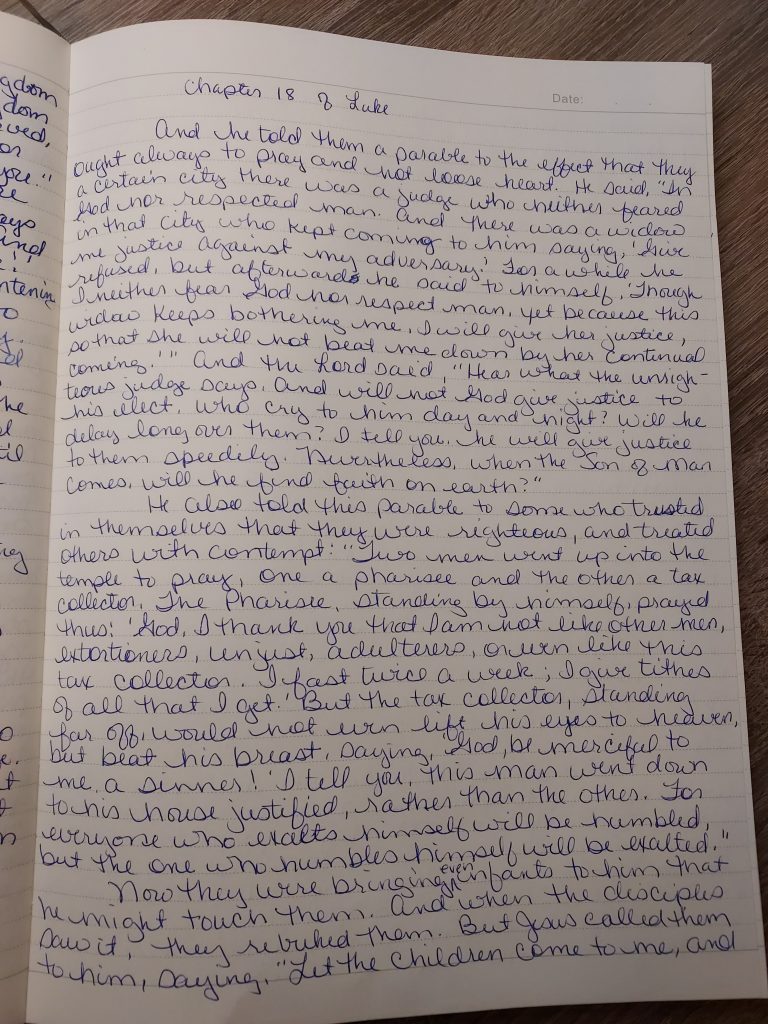 gdom
dom
eved,
or
you."
re
ays
find
ntening
Date:
Chapter 18 of Luke
And he told them a parable to the effect that they
ought always to pray and not loose heart. He said, "In
a certain city there was a judge who neither feared
God nor respected man. And there was a widow
in that city who kept coming to him saying, 'Give
me justice against my adversary.' For a while he
refused, but afterwards he said to himself, 'Though
I neither fear God nor respect man, yet because this
widow keeps bothering me, I will give her justice,
so that she will not beat me down by her continual
coming.'" And the Lord said, "Hear what the unrigh-
teous judge says. And will not God give justice to
his elect, who cry to him day and night? Will he
delay long over them? I tell you, he will give justice
to them speedily. Nevertheless, when the Son of Man
comes, will he find faith on earth?"
He also told this parable to some who trusted
in themselves that they were righteous, and treated
others with contempt: "Two men went up into the
temple to pray, one a pharisee and the other a tax
collector. The Pharisee, standing by himself, prayed
thus: 'God, I thank you that I am not like other men,
extortioners, unjust, adulterers, or even like this
tax collector. I fast twice a week; I give tithes
of all that I get.' But the tax collector, standing
far off, would not even lift his eyes to heaven,
but beat his breast, saying, 'God, be merciful to
me, a sinner!' I tell you, this man went down
to his house justified, rather than the other. For
everyone who exalts himself will be humbled,
but the one who humbles himself will be exalted."
Now they were bringing even infants to him that
he might touch them. And when the disciples
saw it, they rebuked them. But Jesus called them
to him, saying, "Let the children come to me, and